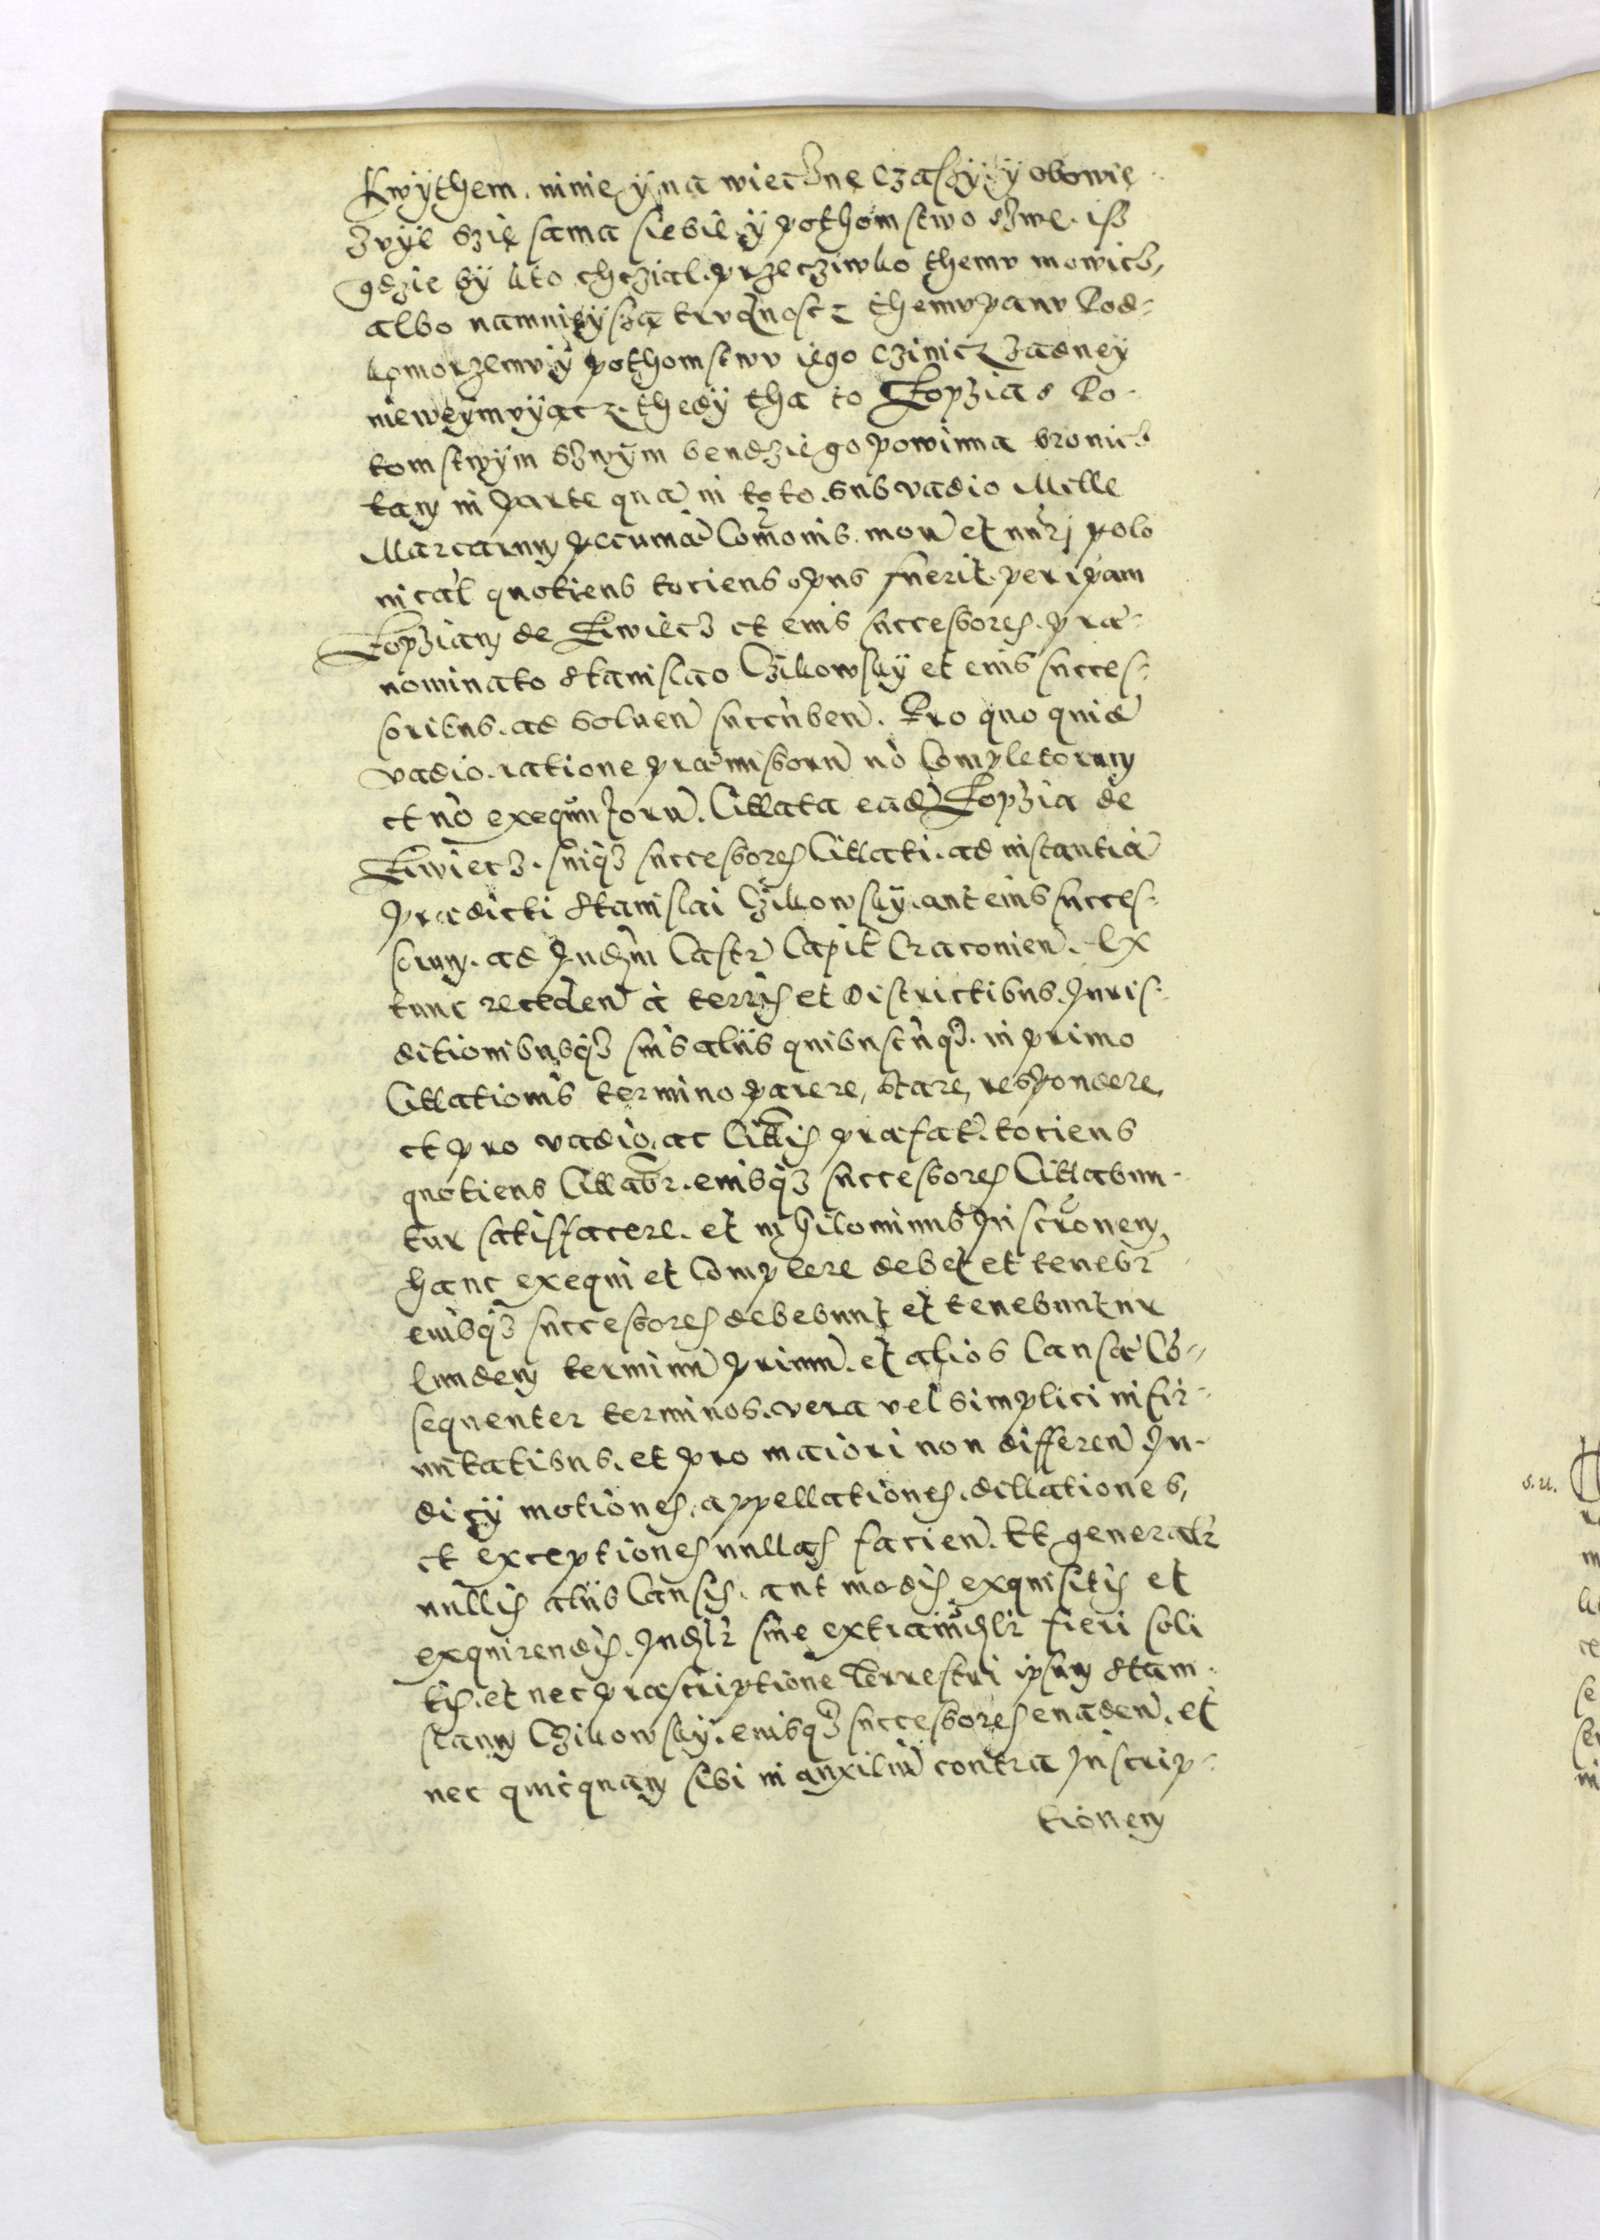 kwÿthem. ninieÿ na wieczne czassÿ ÿ obowię
zuÿe szię sama siebie ÿ pothomstwo szwe. isz
gdzie bÿ kto chczial. przecziwko themv mowicz,
albo namnieÿszą trvdnoscz themv panv Pod-
komorzemv ÿ pothomstwv iego czinicz żadneÿ
nieweÿmvÿącz. thedÿ tha to Zopzia s Po-
tomstwÿm szwÿm bendzie go powinna bronicz
tam in parte qua in toto. sub vadio Mille
Marcarum pecuniae Com̃onis. mon et nu͂ri polo
nical quotiens tociens opus fuerit. per ip̃am
Zopziam de Zwiecz et eius successores. prae-
nominato Stanislao Czikowskÿ et eius succes-
soribus. ad soluen succũben. Pro quo quid̃
vadio. ratione praemissoru nõ Completorum
et nõ exequutoru. Cittata ead̃ Zopzia de
Zwiecz. suiq3 successores Cittati. ad instantiã
praedicti Stanislai Czikowskÿ. aut eius succes-
sorum. ad Iudm Castr Capit Cracouien. Ex
tunc receden à terris et Districtibus. Iuris-
ditionibusq3 suis aliis quibuscũq3. in primo
Cittationis termino parere, stare, respondere,
et pro vadio. ac Cittis praefat. tociens
quotiens Cittabr. eiusq3 successores Cittabun-
tur satisffacere. et nihilominus Inscr̃onem
hanc exequi et Complere debet et tenebr
eiusq3 successores debebunt et tenebuntur
Eundem terminu primu. et alios Causae Cõ-
sequenter terminos. vera vel simplici infir-
mitatibus. et pro maiori non differen Iu-
dicÿ motiones, appellationes. dillationes,
et exceptiones nullas facien. Et generalr
nullis aliis Causis. aut modis exquisitis et
exquirendis. Iudlr siue extraiudlr fieri soli
tis. et nec praescriptione Terrestri ipsum Stani-
slaum Czikowskÿ. eiusq3 successores euaden. et
nec quicquam sibi in auxiliu contra Inscrip-
tionem
s. u.